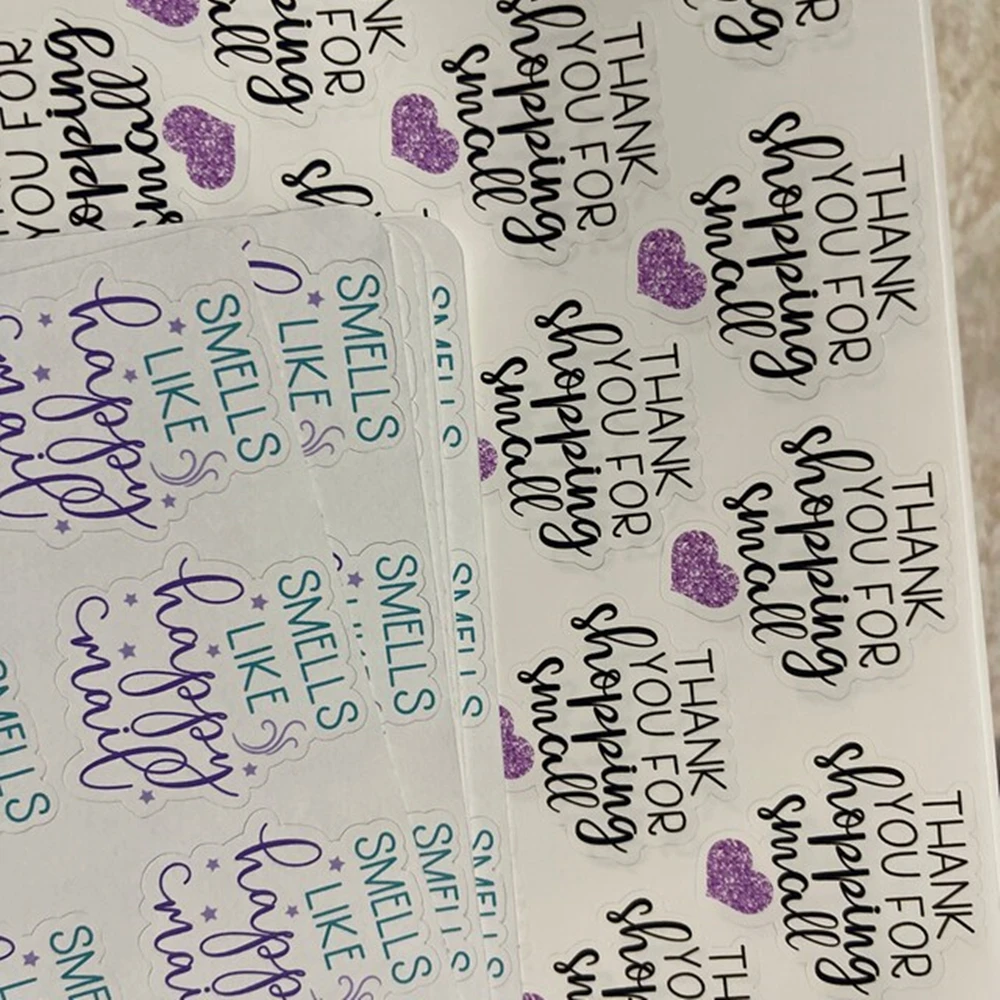 FOR
THANK
YOU FOR
shopping
small
THANK
YOU FOR
shopping
small
YOU FOR
small
THANK
YOU FOR
shopping
small
THANK
YOU FOR
shopping
small
THANK
YOU FOR
shopping
small
THANK
YOU FOR
shopping
small
SMELLS
LIKE
SMELLS
LIKE
happy
mail
SMELLS
SMELLS
LIKE
happy
mail
SMELLS
SMELLS
LIKE